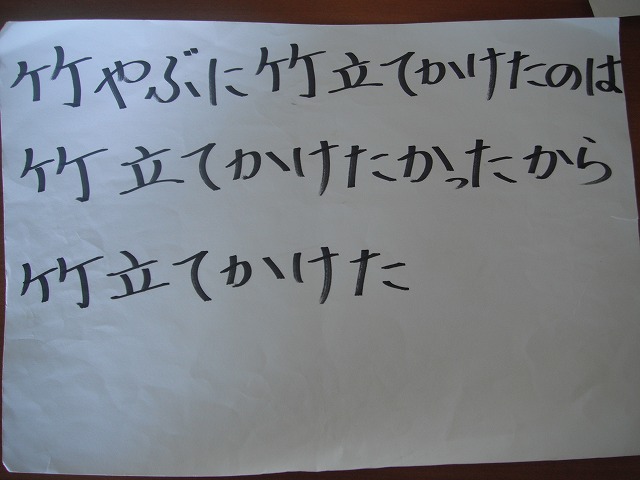 竹やぶに竹立てかけたのは
竹立てかけたかったから
竹立てかけた